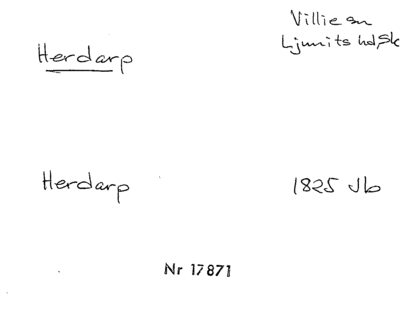 Herdarp
Villie sn
Ljunits hd, Sk
Herdarp
1825 Jb
Nr 17871